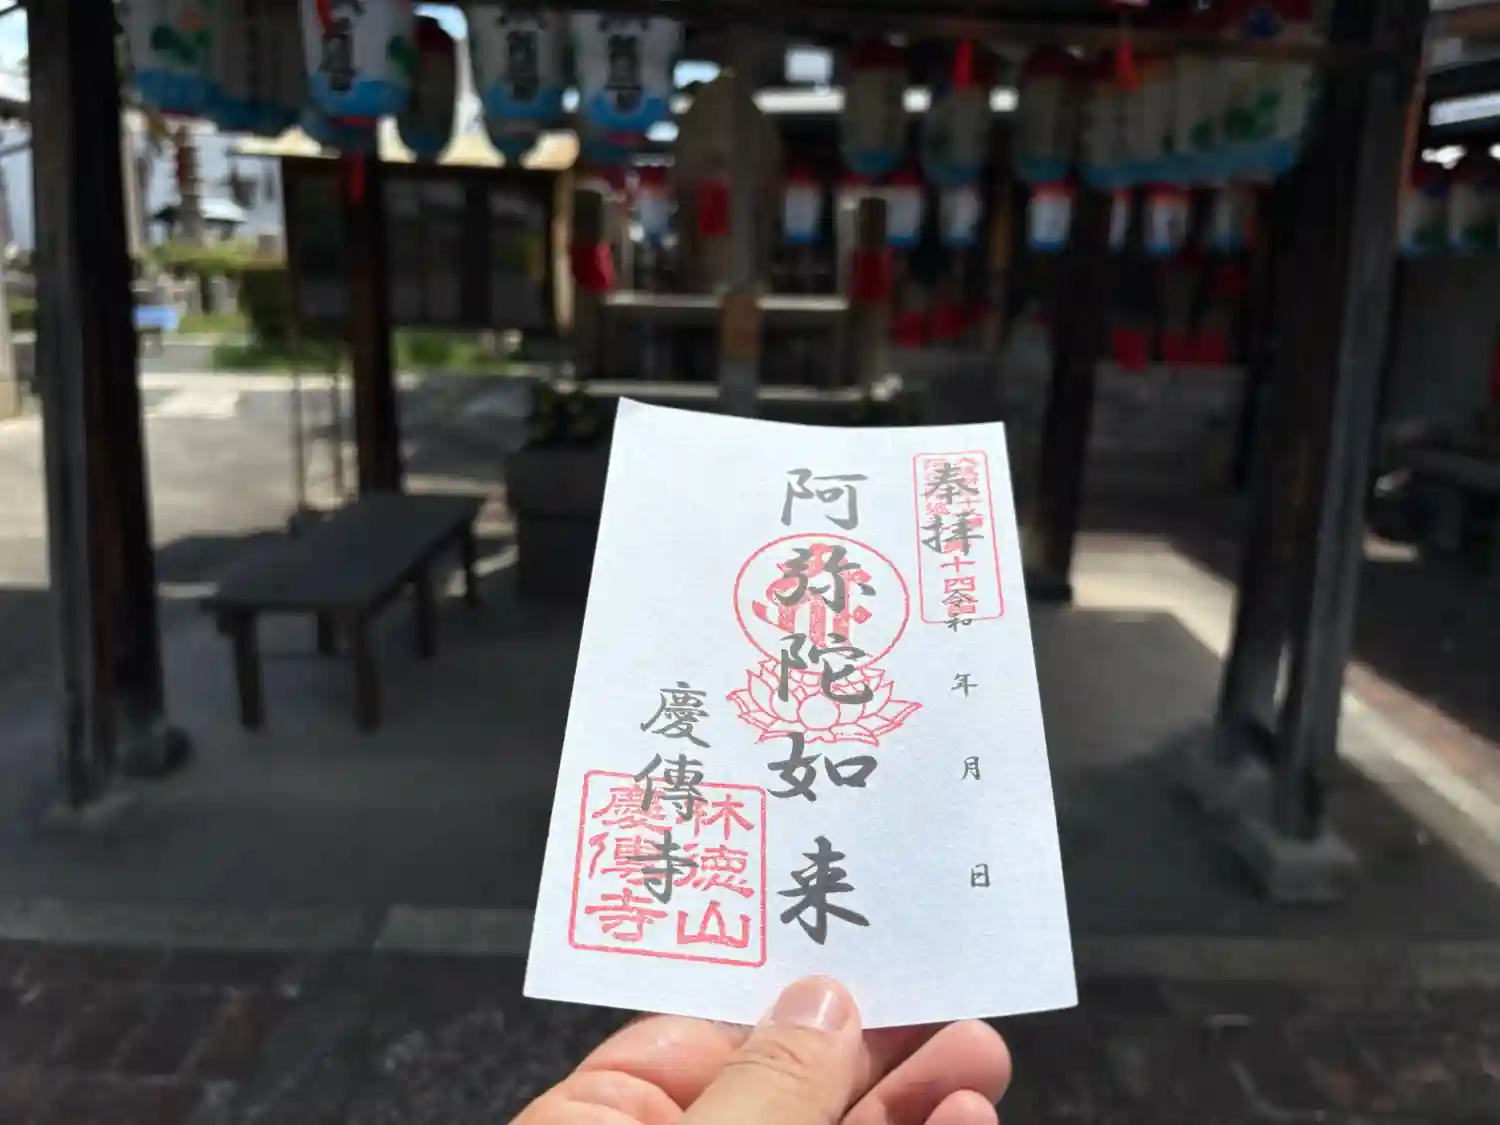 奉拝
十四番
令和 年 月 日
阿弥陀如来
慶傳寺
林徳山
慶傳寺